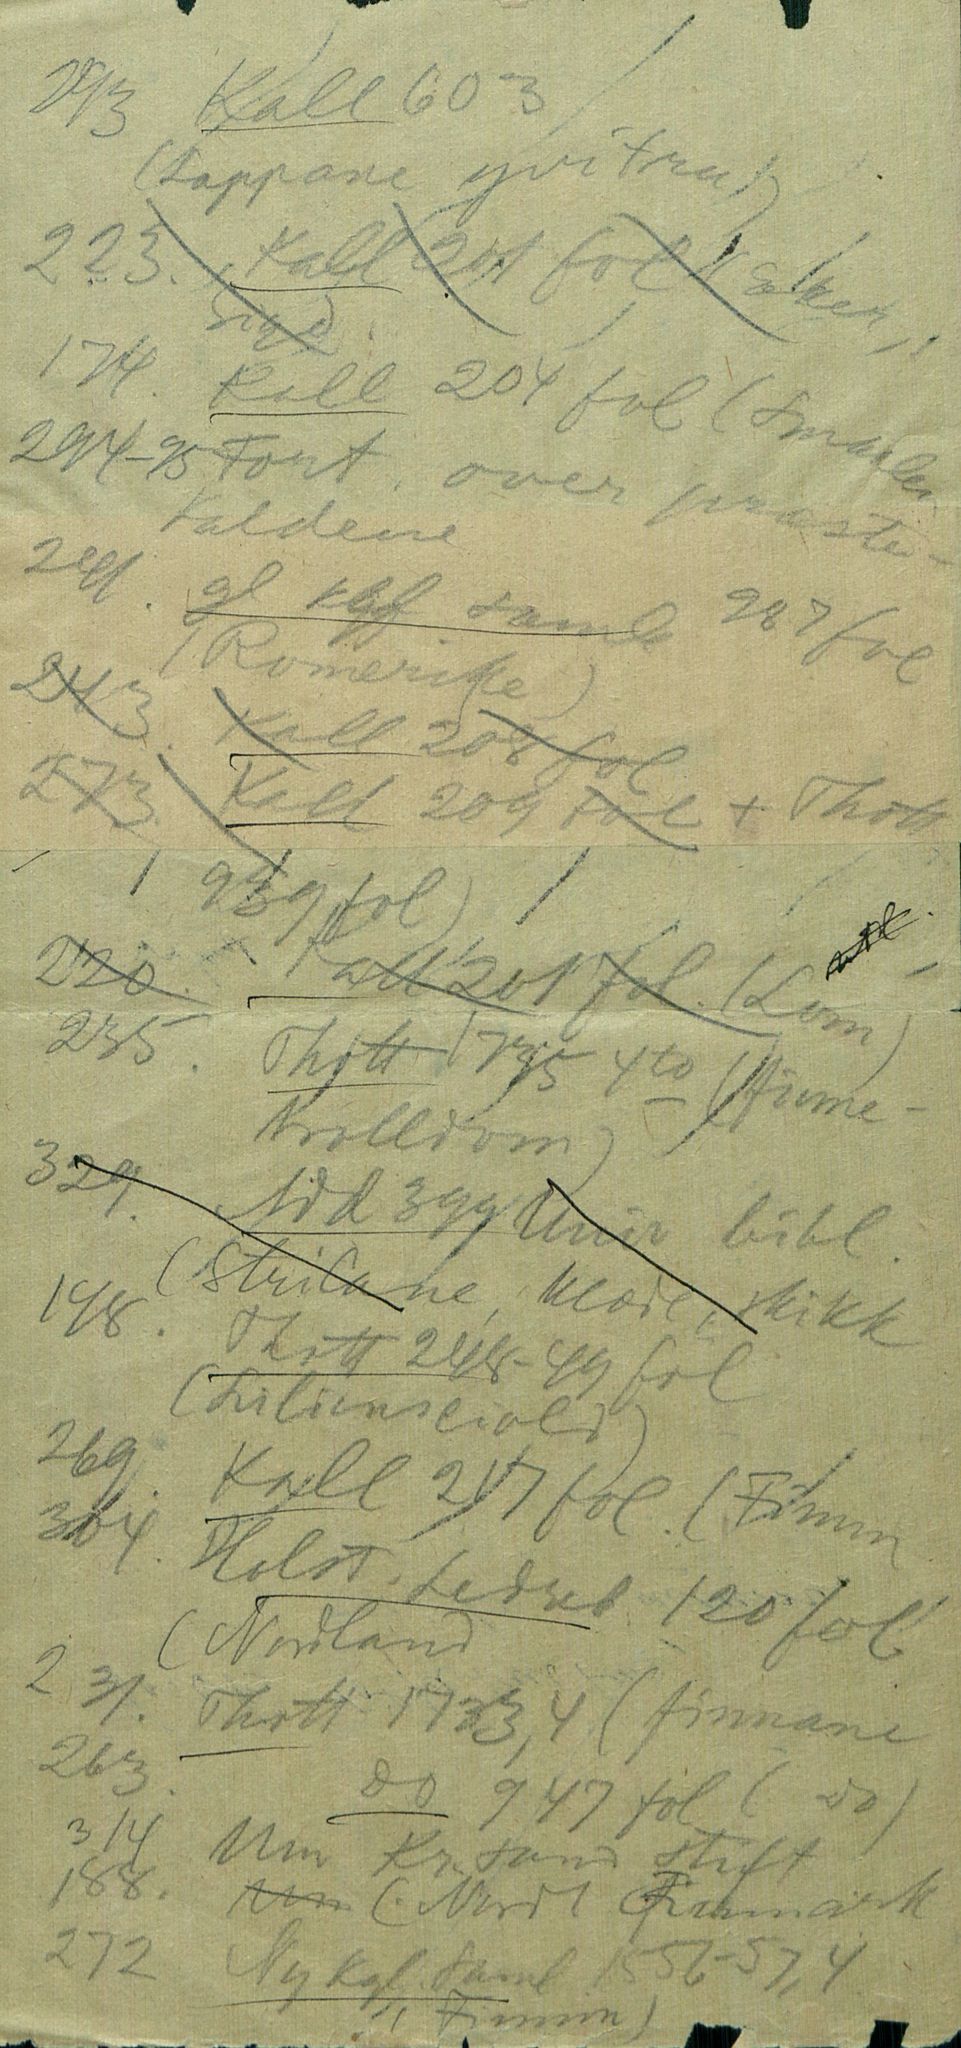 293 Kall 603
(Lappane
223. Kall 201 fol
174. Kall 204 fol (Smaalen
294-95 Fort. over præste-
kaldene
241. gl kgl saml 987 fol
(Romerike)
243. Kall 208 fol
273. Kall 209 fol + Thott
939 fol)
220. Kall 201 fol. (Lom)
235. Thott 1735 4to (finne-
trolldom)
329. Add 399 Univ bibl.
(Strilane, klæde, skikk
198. Thott 248-49 fol
(Lilienskiold)
269. Kall 217 fol. (Finnm
304. Holst. Ledreb 120 fol
(Nordland
231. Thott 1733, 4 (finnane
263. do 947 fol ( do)
314 Um Kr.sand stift
188. Um (Nordl Finnmark
272 Ny kgl. Saml 1556-57, 4
(Finnm)